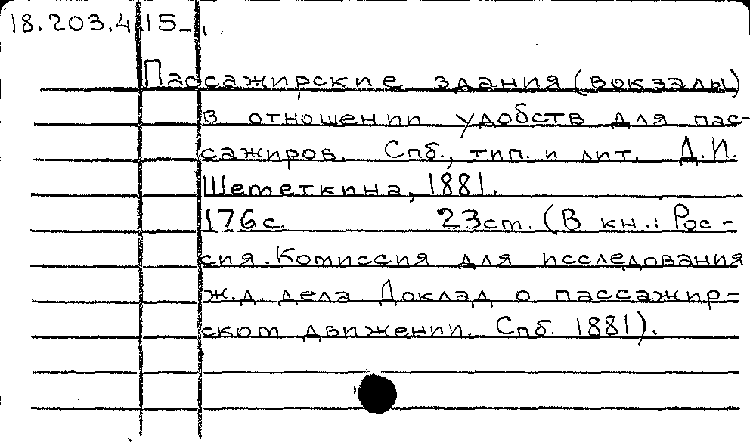 18.203.4.15
Пассажирские здания (вокзалы)
в отношении удобств для пас-
сажиров. Спб., тип. и лит. Д.И.
Шеметкина, 1881.
176с. 23см. (В кн.: Рос-
сия. Комиссия для исследования
ж.д. дела Доклад о пассажир-
ском движении. Спб. 1881).